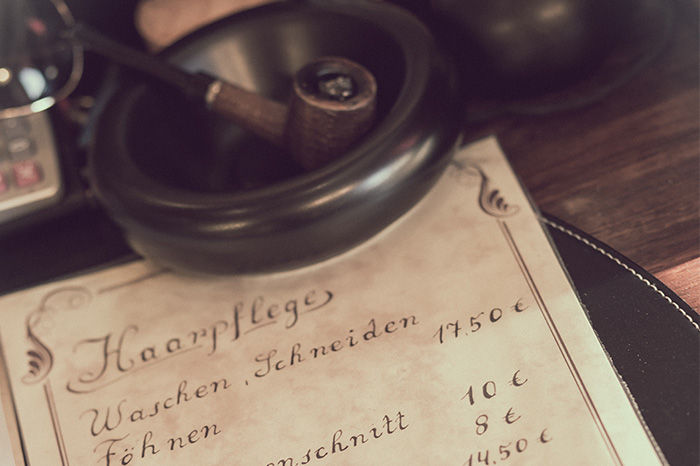 Haarpflege
Waschen, Schneiden 17,50 €
Föhnen 10 €
8 €
14,50 €